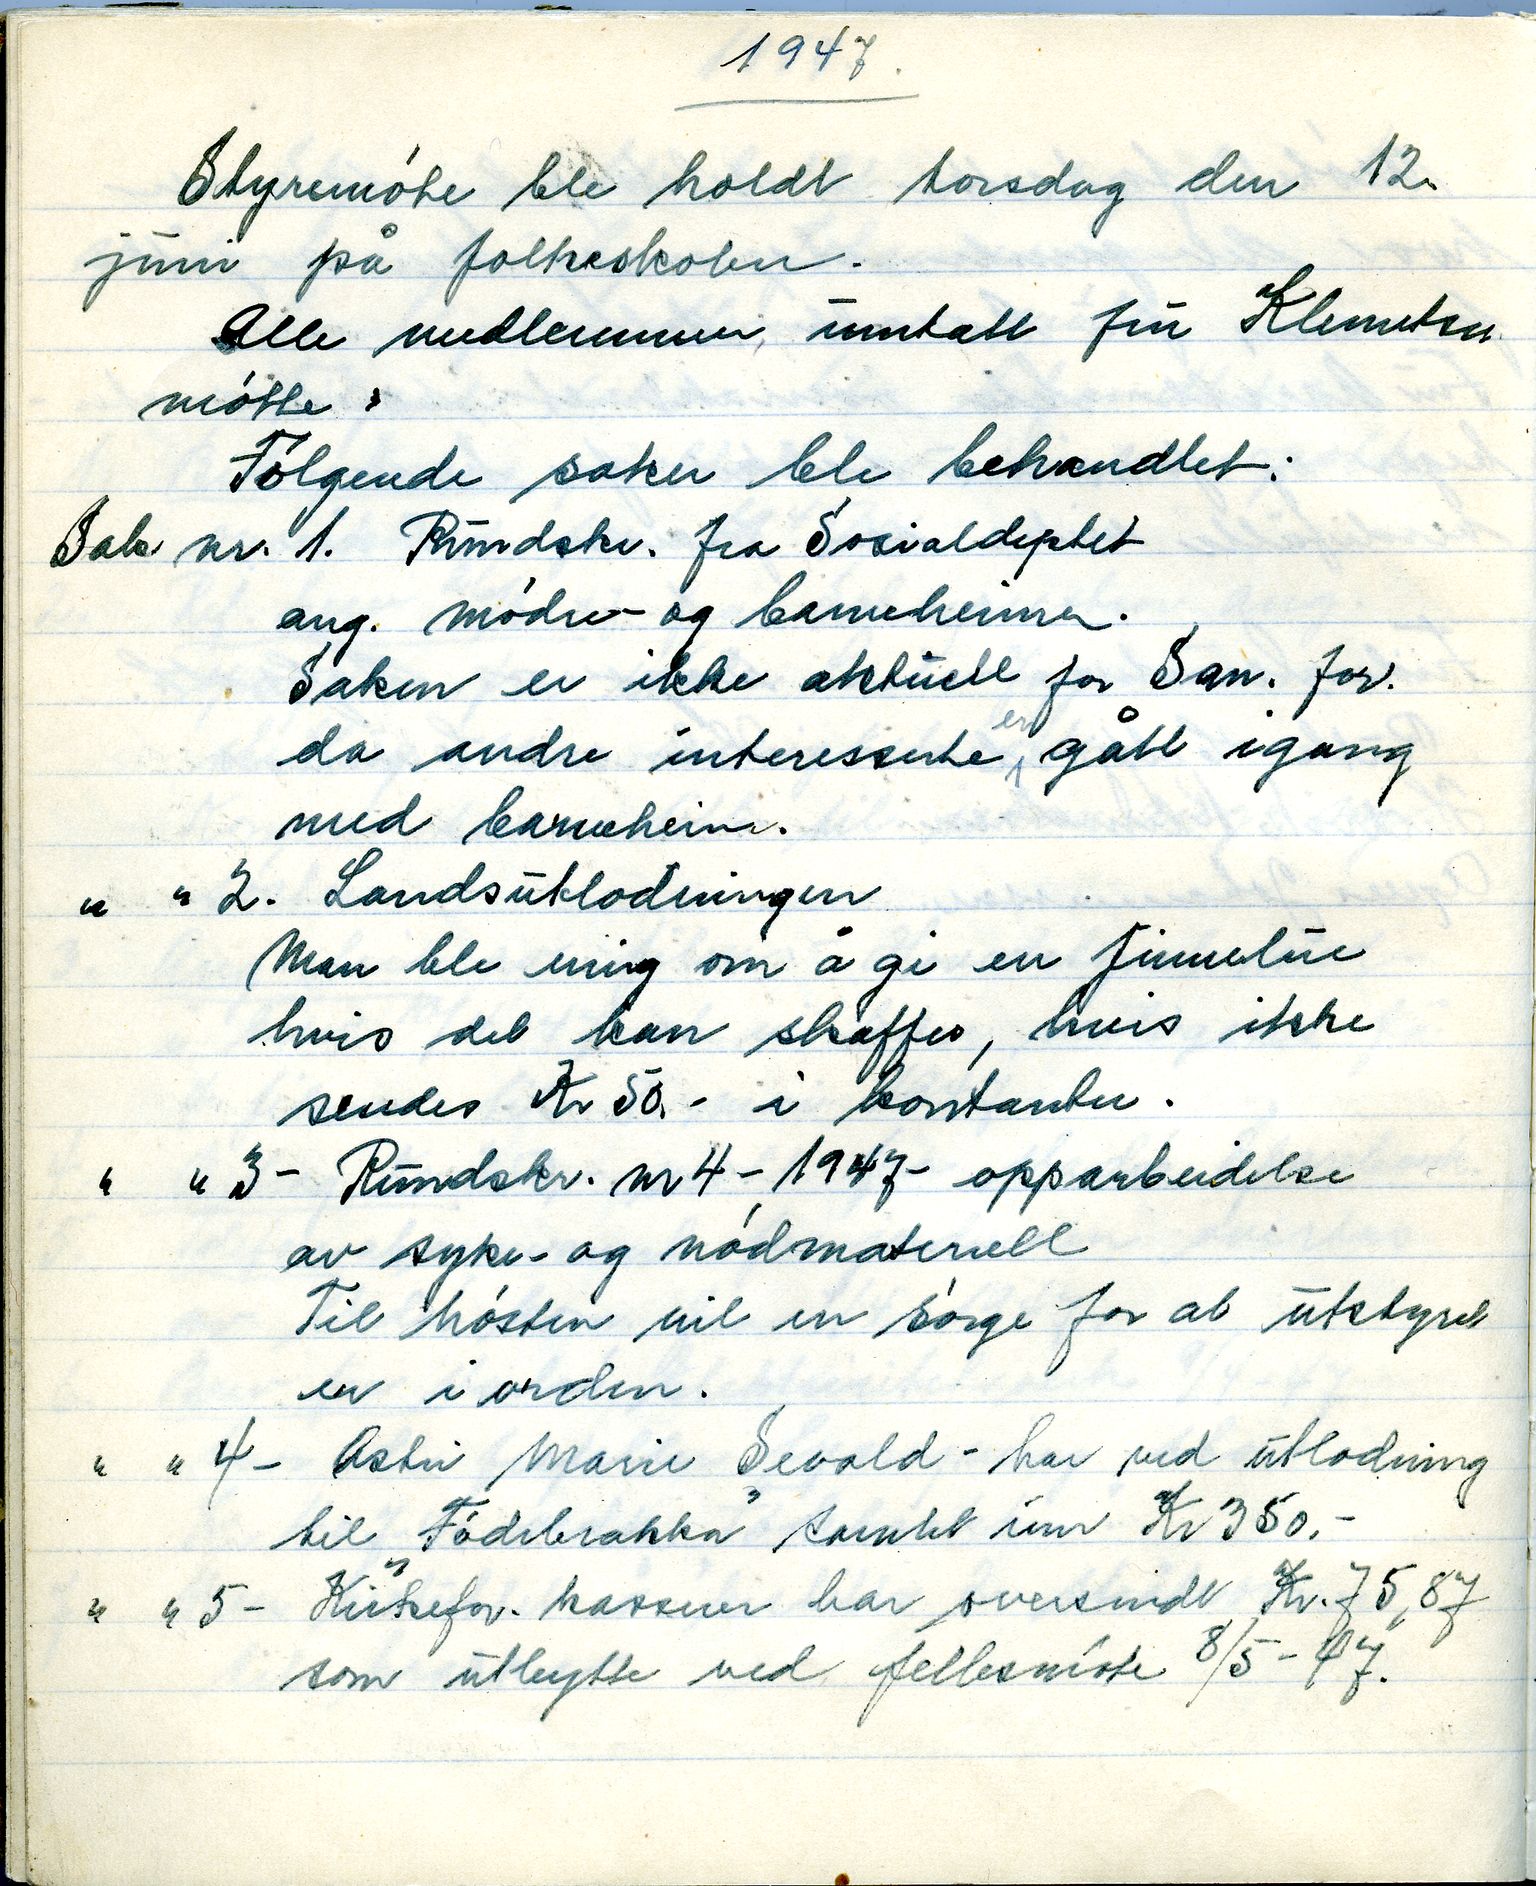 1947.
Styremóte ble holdt torsdag den 12.
juni på folkeskolen.
Alle medlemmer, unntatt fru Klemetsen
mótte.
Fólgende saker ble behandlet:
Sak nr. 1. Rundskr. fra Sosialdeptet
ang. módre- og barneheimer.
Saken er ikke aktuell for San. for.
da andre interesserte er gått igang
med barneheim.
" " 2. Landsutlodningen
Man ble enig om å gi en finnelue
hvis det kan skaffes, hvis ikke
sendes Kr 50.- i kontanter.
" " 3 - Rundskr. nr 4 - 1947 - opparbeidelse
av syke- og nódmateriell
Til hósten vil en sórge for at utstyret
er i orden.
" " 4 - Astri Marie Sevald - har ved utlodning
til "Fódebrakka" samlet inn Kr 350.-
" " 5 - Kirkefor. kasserer har oversendt Kr. 75,87
som utbytte ved fellesmóte 8/5 - 47.